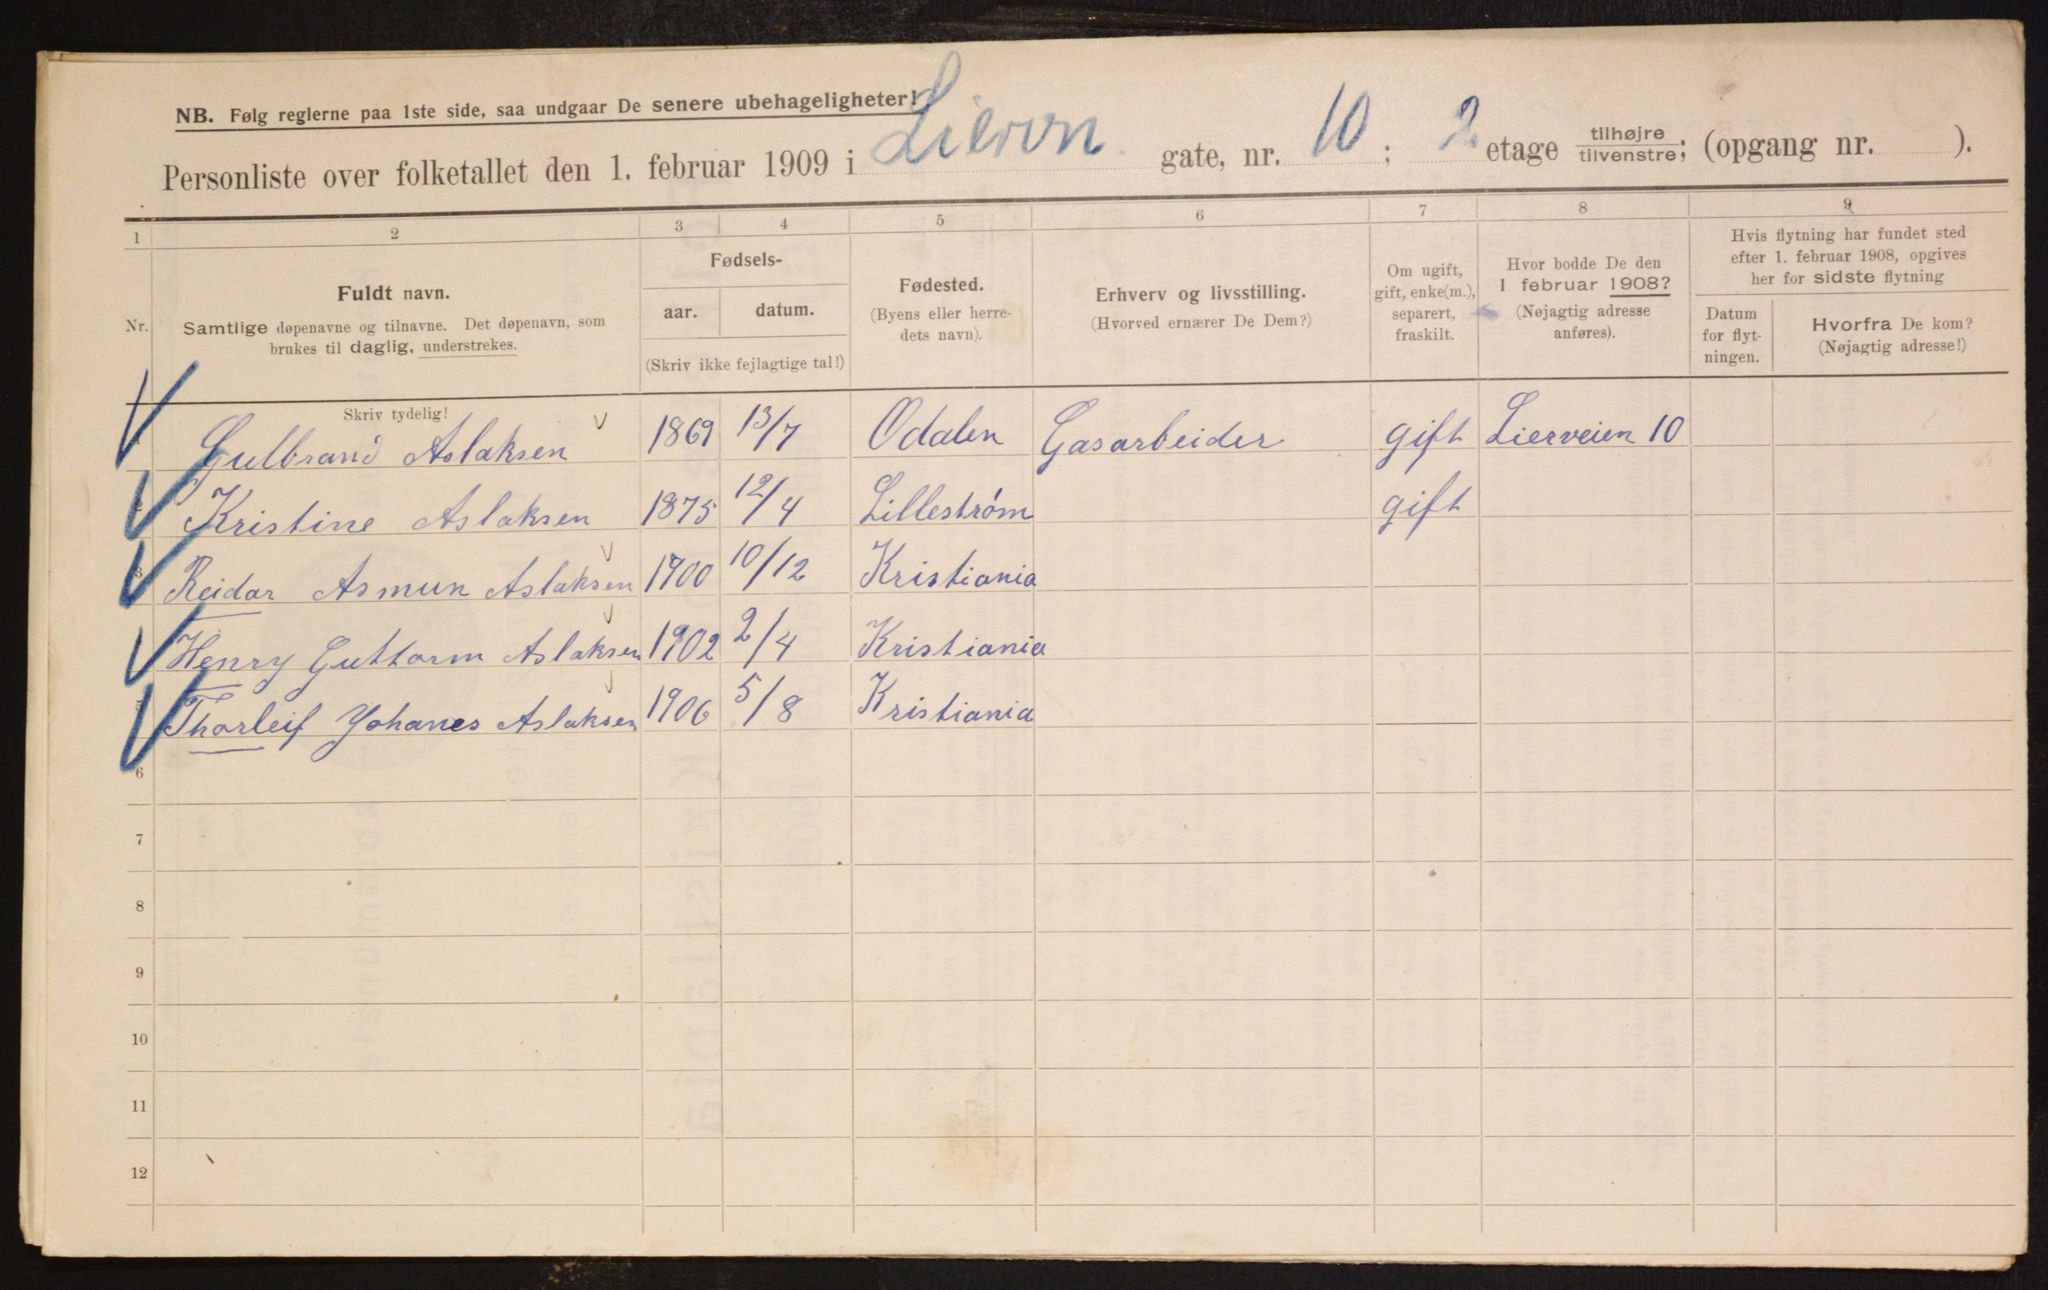 NB. Følg reglerne paa 1ste side, saa undgaar De senere ubehageligheter!
Personliste over folketallet den 1. februar 1909 i Liervn gate, nr. 10 ; 2 etage tilhøjre tilvenstre; (opgang nr. ).
1 2 3 4 5 6 7 8 9
Nr.
Fuldt navn.
Samtlige døpenavne og tilnavne. Det døpenavn, som
brukes til daglig, understrekes.
Fødsels-
aar. datum.
(Skriv ikke fejlagtige tal!)
Fødested.
(Byens eller herre-
dets navn).
Erhverv og livsstilling.
(Hvorved ernærer De Dem?)
Om ugift,
gift, enke(m.),
separert,
fraskilt.
Hvor bodde De den
1 februar 1908?
(Nøjagtig adresse
anføres).
Hvis flytning har fundet sted
efter 1. februar 1908, opgives
her for sidste flytning
Datum
for flyt-
ningen.
Hvorfra De kom?
(Nøjagtig adresse!)
Skriv tydelig!
Gulbrand Aslaksen 1869 13/7 Odalen Gasarbeider gift Lierveien 10
Kristine Aslaksen 1875 12/4 Lillestrøm gift
3 Reidar Asmun Aslaksen 1900 10/12 Kristiania
Henry Guttorm Aslaksen 1902 2/4 Kristiania
5 Thorleif Johanes Aslaksen 1906 5/8 Kristiania
6
7
8
9
10
11
12